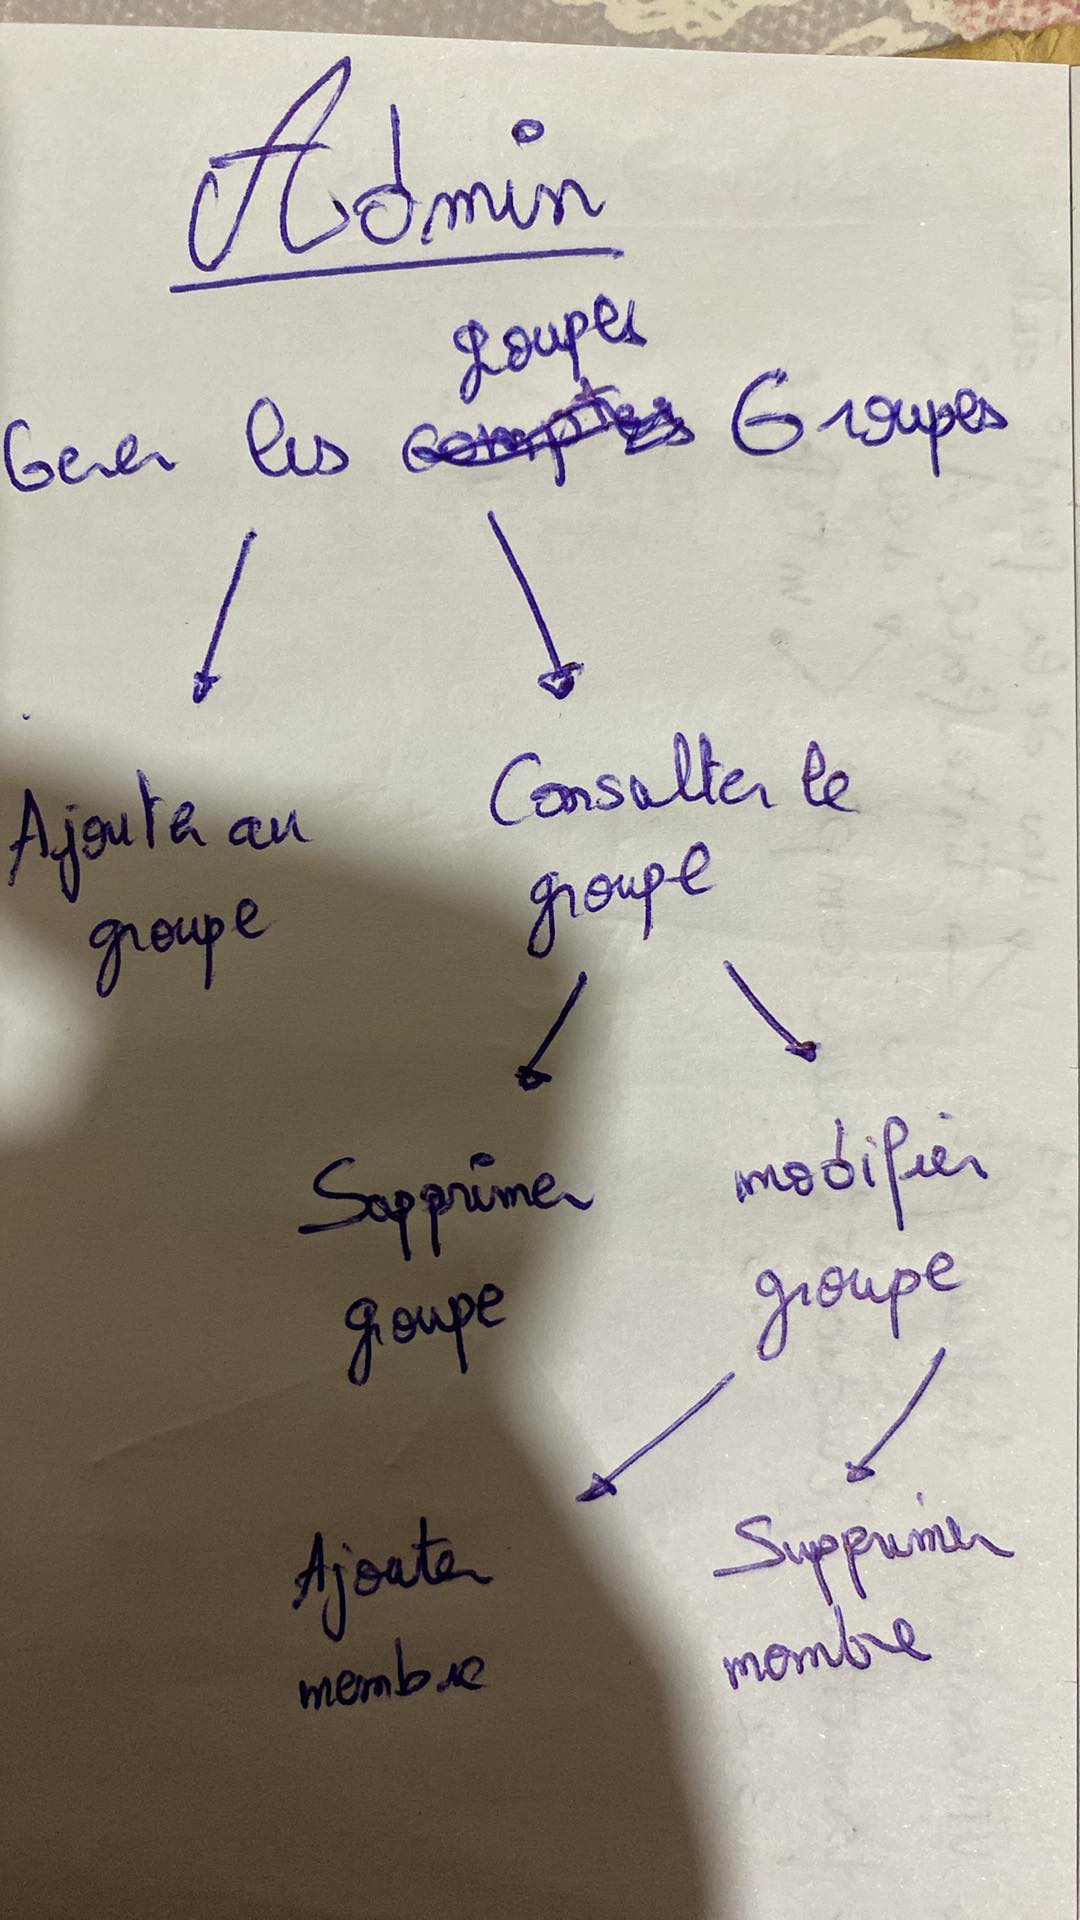 Admin
goupes
Gerer les comptes Groupes
Ajouter au
groupe
Consulter le
groupe
Supprimer
goupe
modifier
groupe
Ajouter
membre
Supprimer
membre